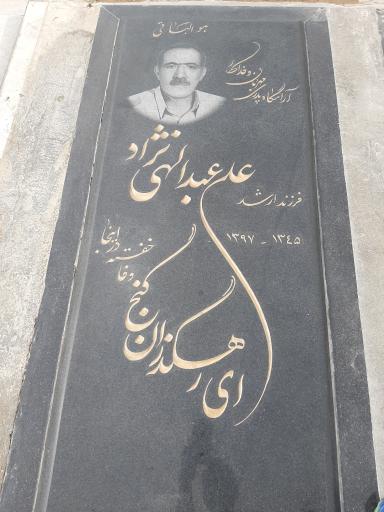 هو الباقی
آرامگاه پدری مهربان و فداکار
علی عبدالهی نژاد
فرزند ارشد
۱۳۴۵ - ۱۳۹۷
ای رهگذران گنج وفا خفته در اینجا